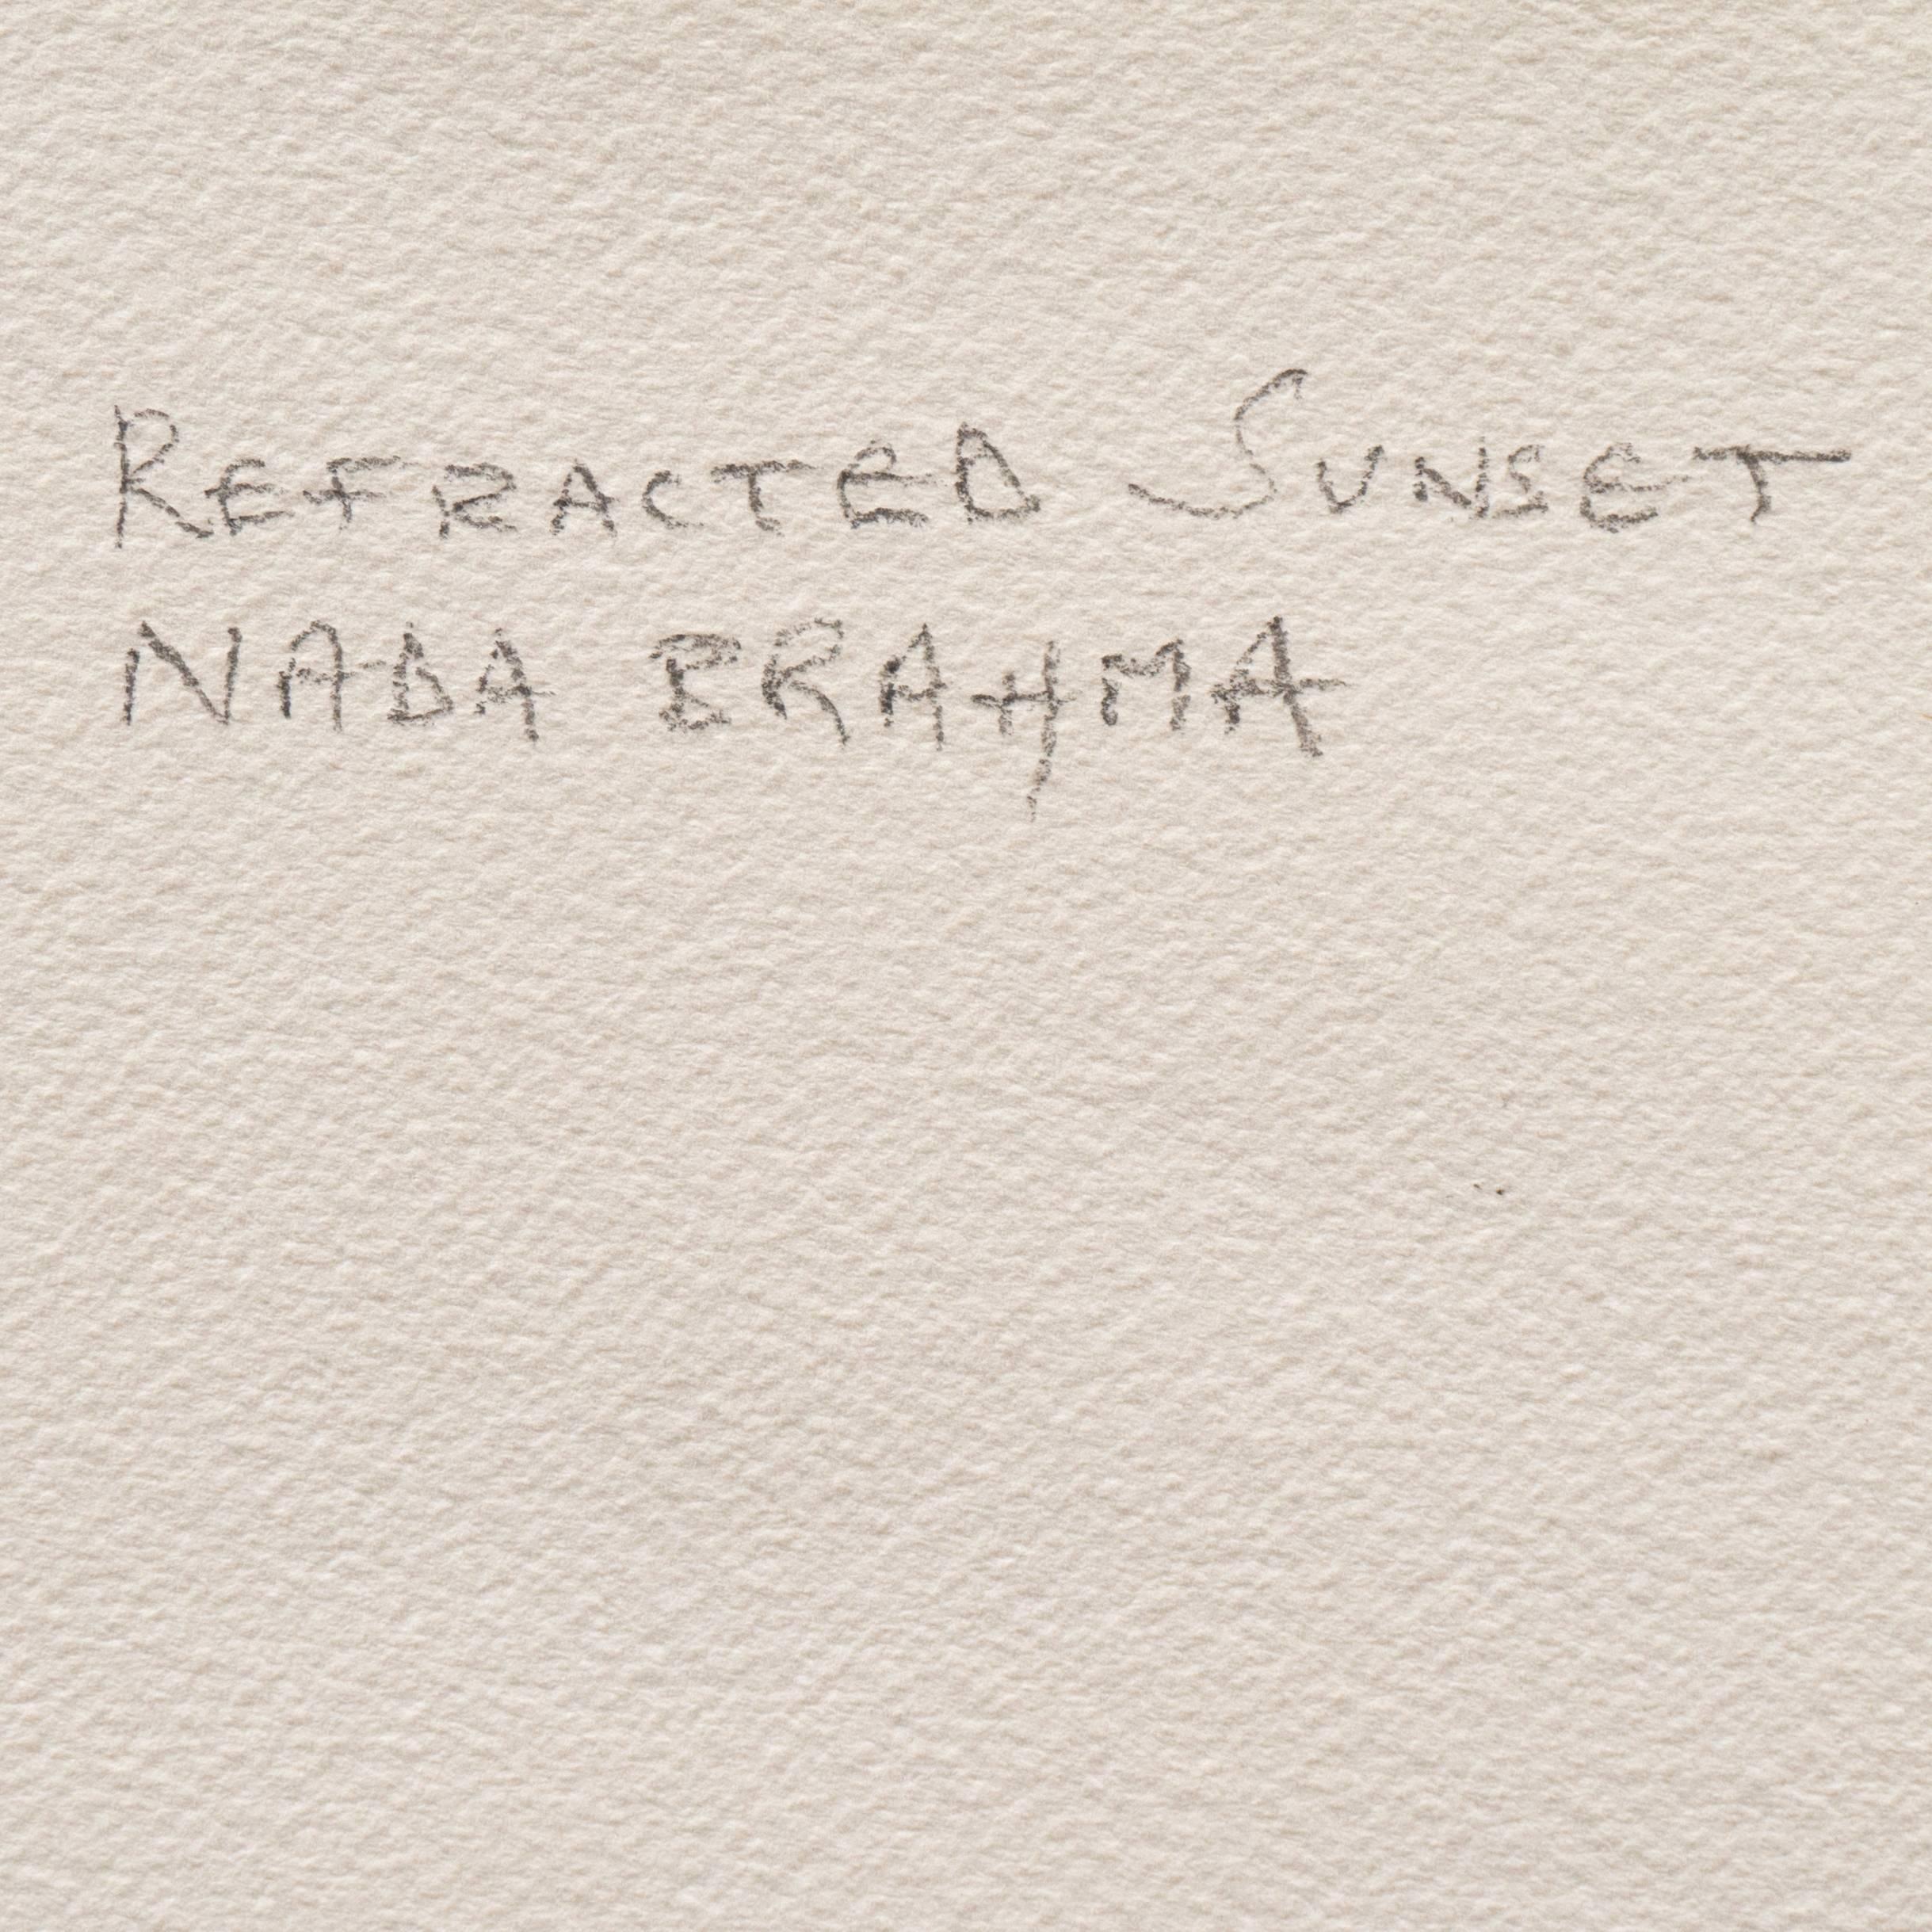 REFRACTED SUNSET
NADA BRAHMA